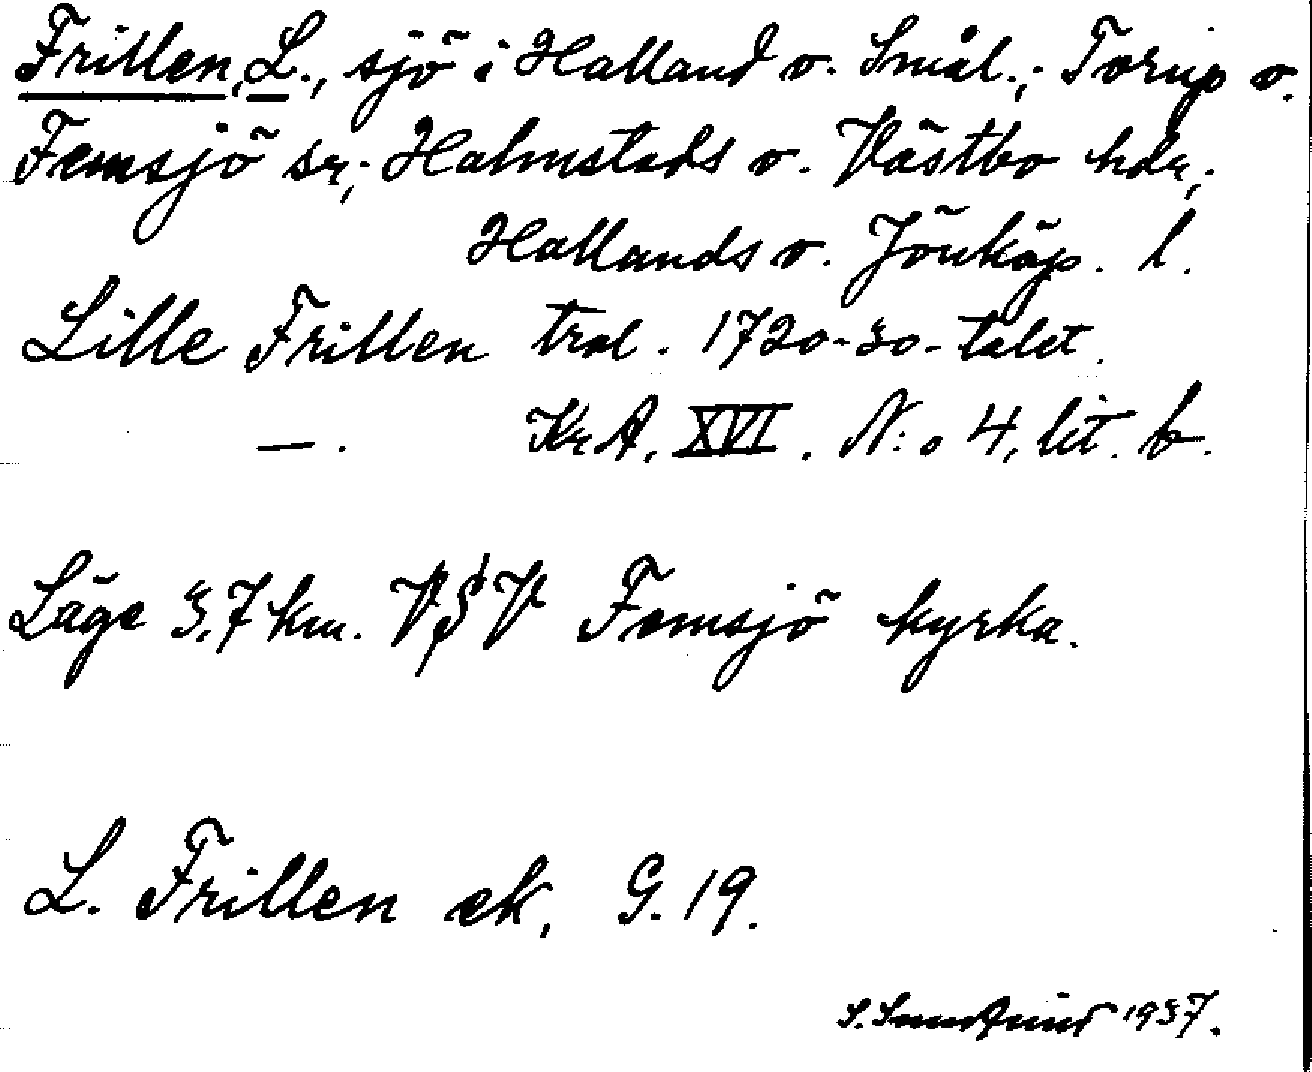 Frillen, L., sjö i Halland o. Smål.; Torup o.
Femsjö sr; Halmstads o. Västbo hdr;
Hallands o. Jönköp. l.
Lille Frillen trol. 1720-30-talet.
—. KrA. XVI. N:o 4, lit. b.
Läge 3,7 km. VSV Femsjö kyrka.
L. Frillen ek. G. 19.
S. 1937.